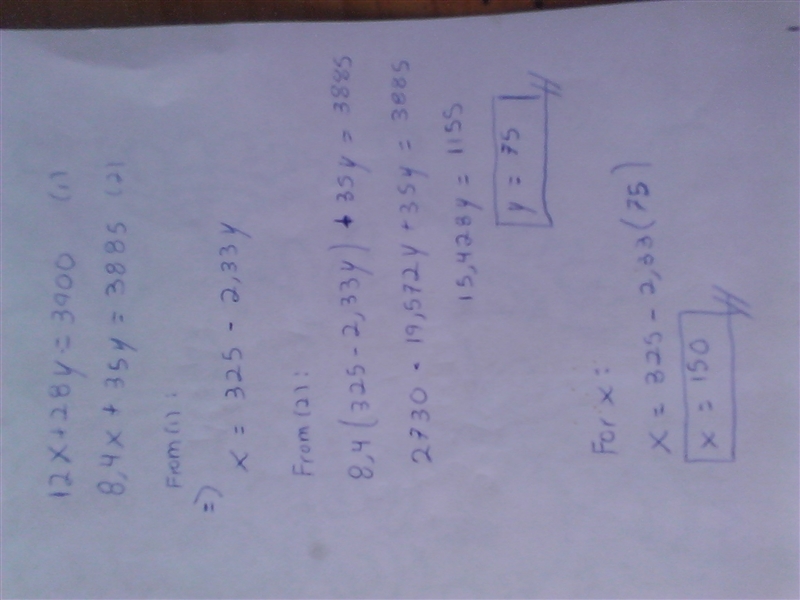 12x+28y=3900 (1)
8,4x + 35y = 3885 (2)
From(1):
=)
x = 325 - 2,33y
From(2):
8,4(325-2,33y) + 35y = 3885
2730 - 19,572y + 35y = 3885
15,428y = 1155
y = 75
For x:
x = 325 - 2,33(75)
x = 150